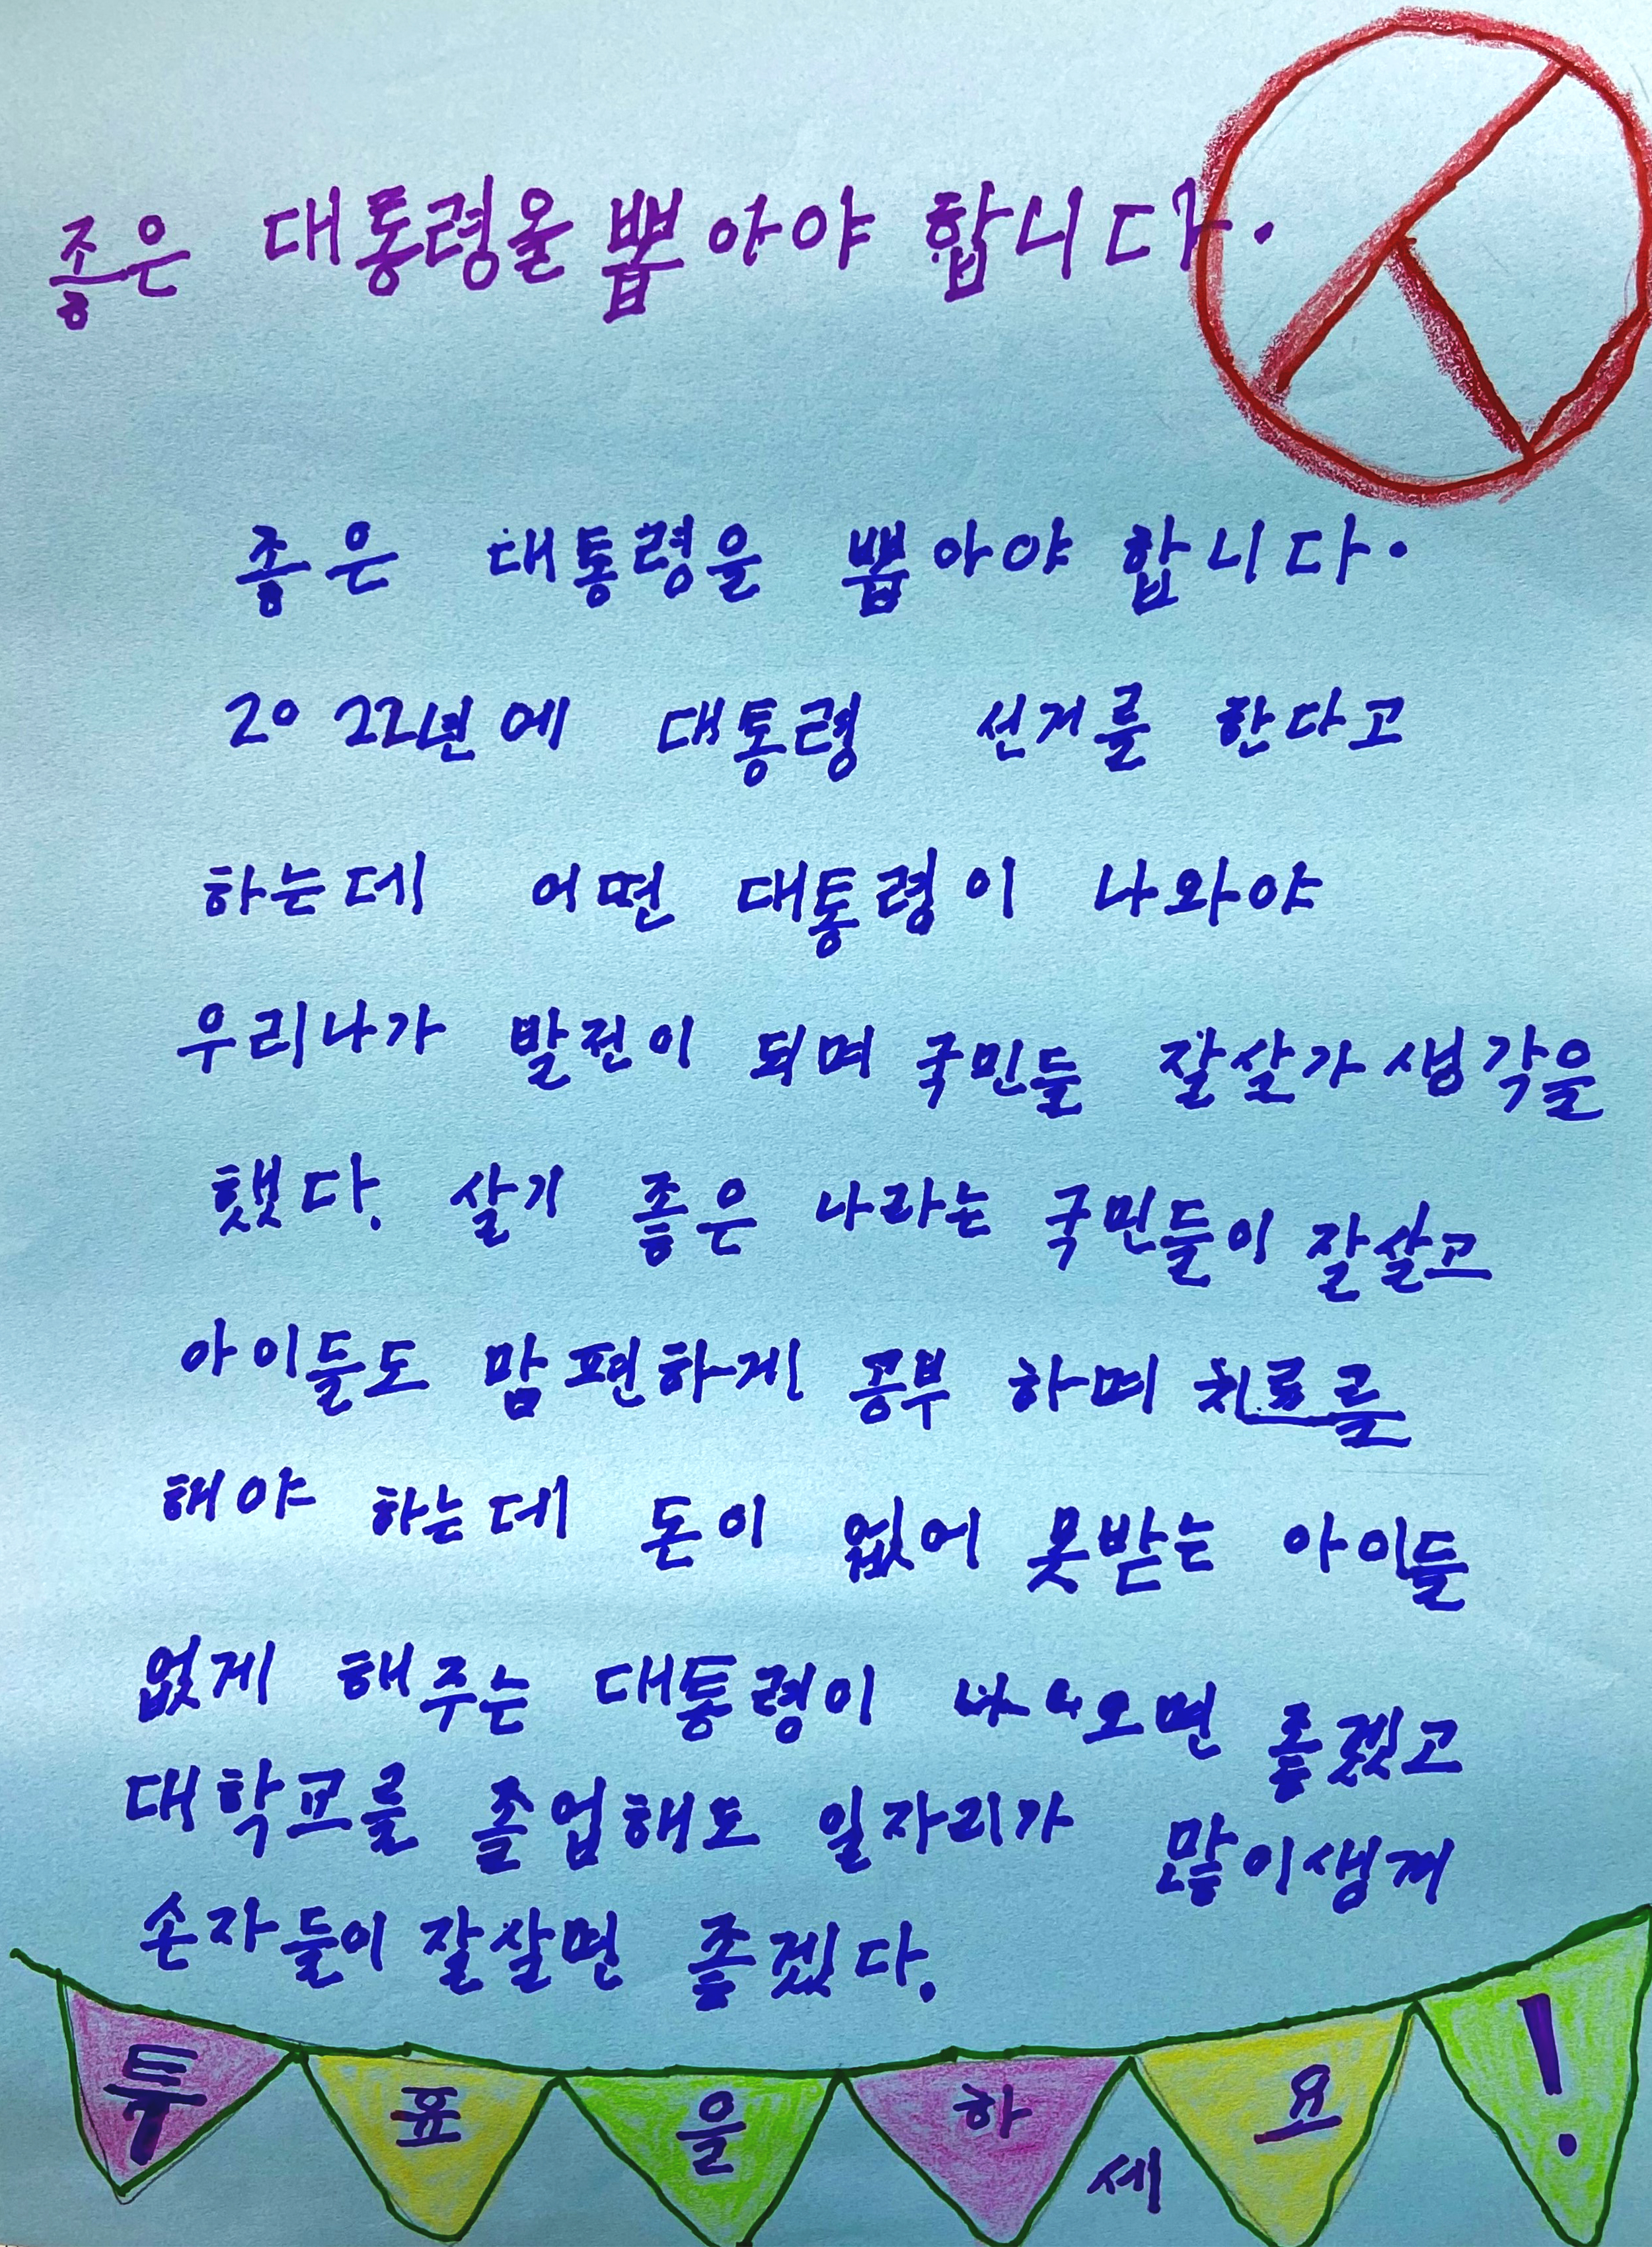 좋은 대통령을 뽑아야 합니다.
좋은 대통령을 뽑아야 합니다.
2022년에 대통령 선거를 한다고
하는데 어떤 대통령이 나와야
우리나가 발전이 되며 국민들 잘살가 생각을
했다. 살기 좋은 나라는 국민들이 잘살고
아이들도 맘 편하게 공부 하며 치료를
해야 하는데 돈이 없어 못받는 아이들
없게 해주는 대통령이 나오면 좋겠고
대학교를 졸업해도 일자리가 많이생겨
손자들이 잘살면 좋겠다.
투표을하세요!